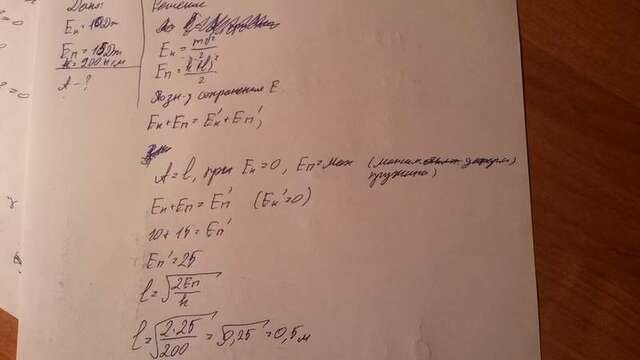 Дано:
Eк = 10Дж
Eп = 15Дж
k = 200 н/м
A - ?
Решение
По
Eк = mv²/2
Eп = k(Δl)²/2
По зн-у сохранения E
Eк + Eп = Eк' + Eп',
A = l, при Eк = 0, Eп = max (максим. деформ.
пружина)
Eк + Eп = Eп' (Eк' = 0)
10 + 15 = Eп'
Eп' = 25
l = √(2Eп/k)
l = √(2·25/200) = √0,25 = 0,5 м